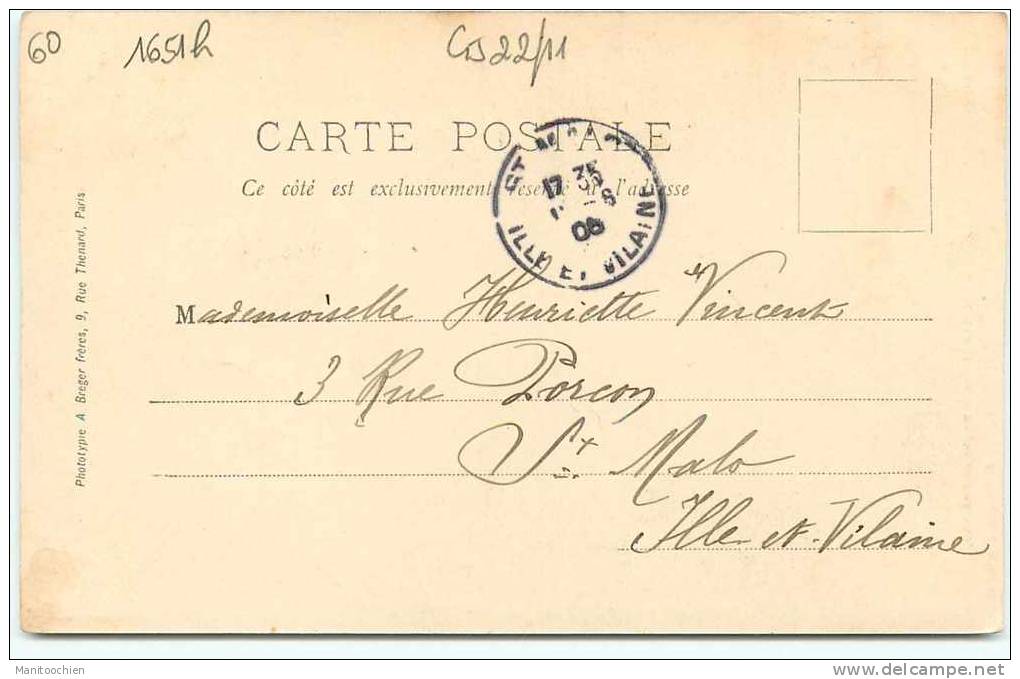 60
1651h
22/11
CARTE POSTALE
Ce côté est exclusivement réservé à l'adresse
ST MALO
17 35
-8
06
ILLE ET VILAINE
Phototypie A Breger frères, 9, Rue Thenard, Paris
Mademoiselle Henriette Vincent
3 Rue Porcon
St Malo
Ille et Vilaine
Manitoochien
www.delcampe.net